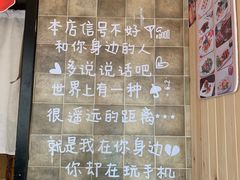 本店信号不好
和你身边的人
多说说话吧
世界上有一种
很遥远的距离…
就是我在你身边
你却在玩手机